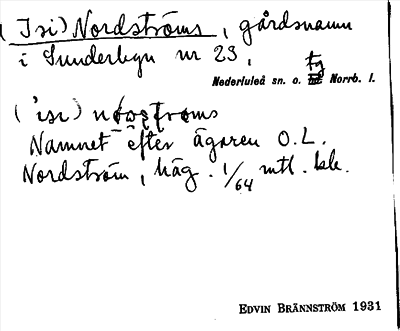 (Isi) Nordströms, gårdsnamn
i Sunderbyn nr 23,
Nederluleå sn. o. tg Norrb. l.
('isi)
Namnet efter ägaren O.L.
Nordström, häg. 1/64 mtl.
EDVIN BRÄNNSTRÖM 1931